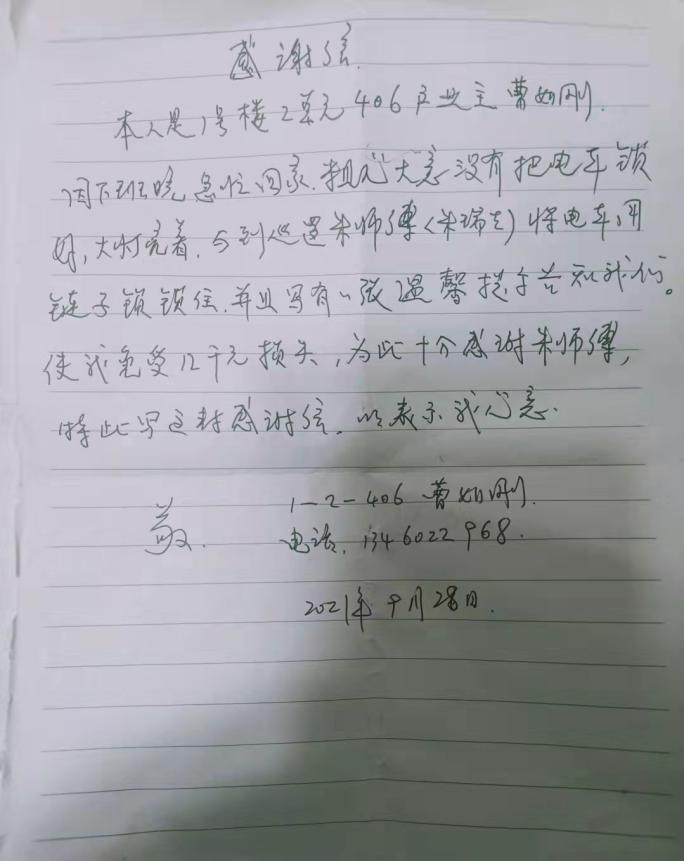 感谢信.
本人是1号楼2单元406户业主曹如刚.
因下班晚急忙回家.粗心大意没有把电车锁
好,大灯亮着.与到巡逻米师傅(米瑞)将电车用
链子锁锁住.并且写有一张温馨提示告知我们。
使我免受几千元损失,为此十分感谢米师傅,
特此写这封感谢信.以表示我心意.
1-2-406 曹如刚.
敬.
电话.1346022968.
2021年9月28日.